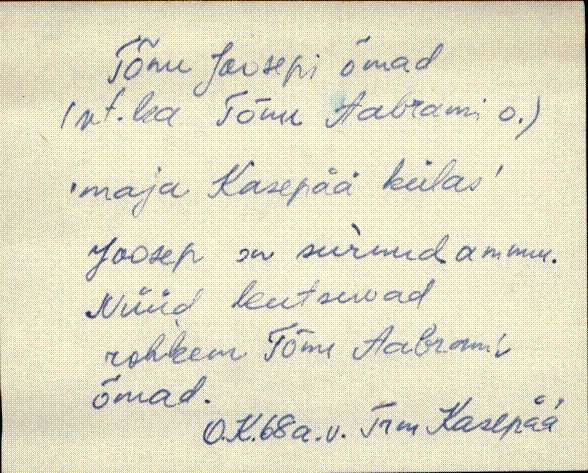 Tõnu Joosepi õmad
(vt. ka Tõnu Aabrami o.)
'maja Kasepää külas'
Joosep on surnud ammu.
Nüüd kutsuvad
rohkem Tõnu Aabrami
õmad.
O.K. 68 a. v. Trm Kasepää